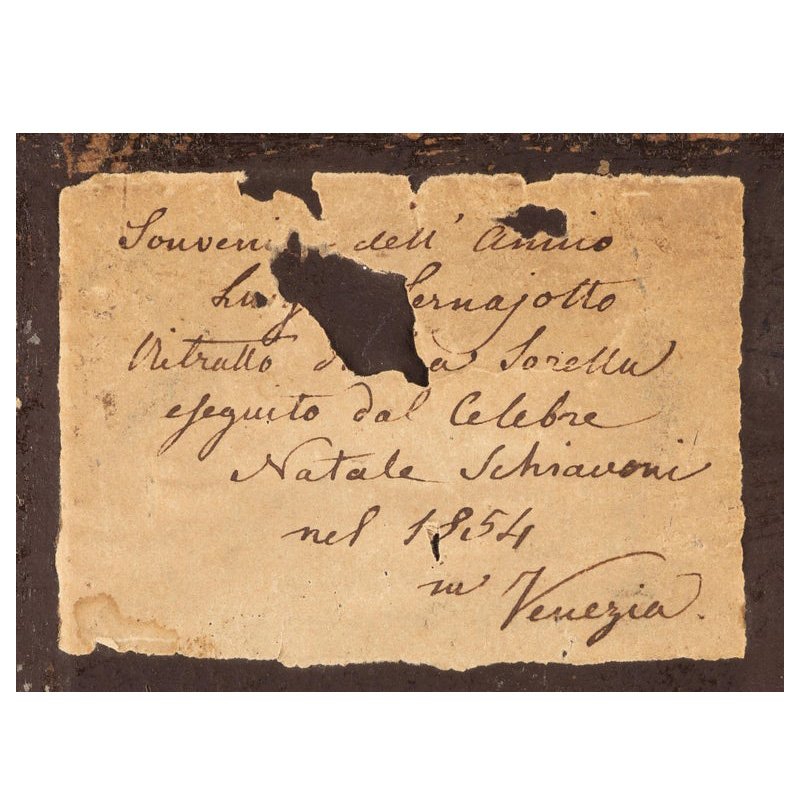 Souveni dell' Amico
Lu ernajotto
Ritratto d a Sorella
eseguito dal Celebre
Natale Schiavoni
nel 1854
in Venezia.